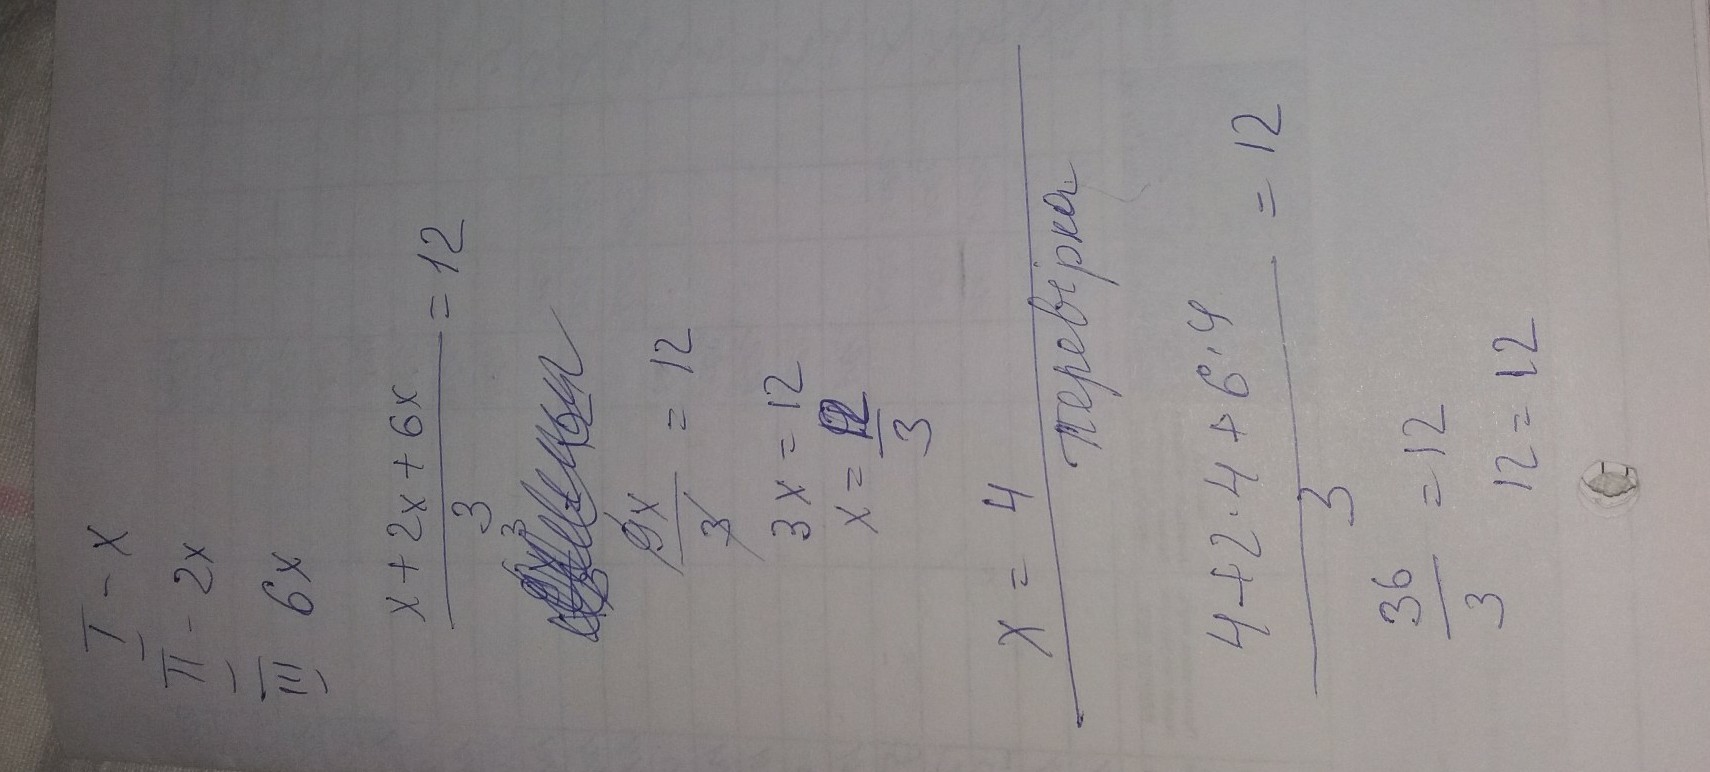 I - x
II - 2x
III 6x
x + 2x + 6x
3
= 12
9x
3
3
= 12
3x = 12
x = 12
3
x = 4
перевірка
4 + 2 · 4 + 6 · 4
3
= 12
36
3
= 12
12 = 12